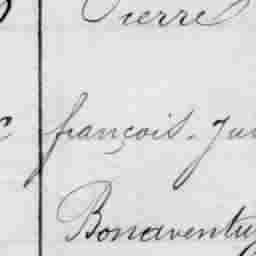 Pierre
françois. Ju
Bonaventu